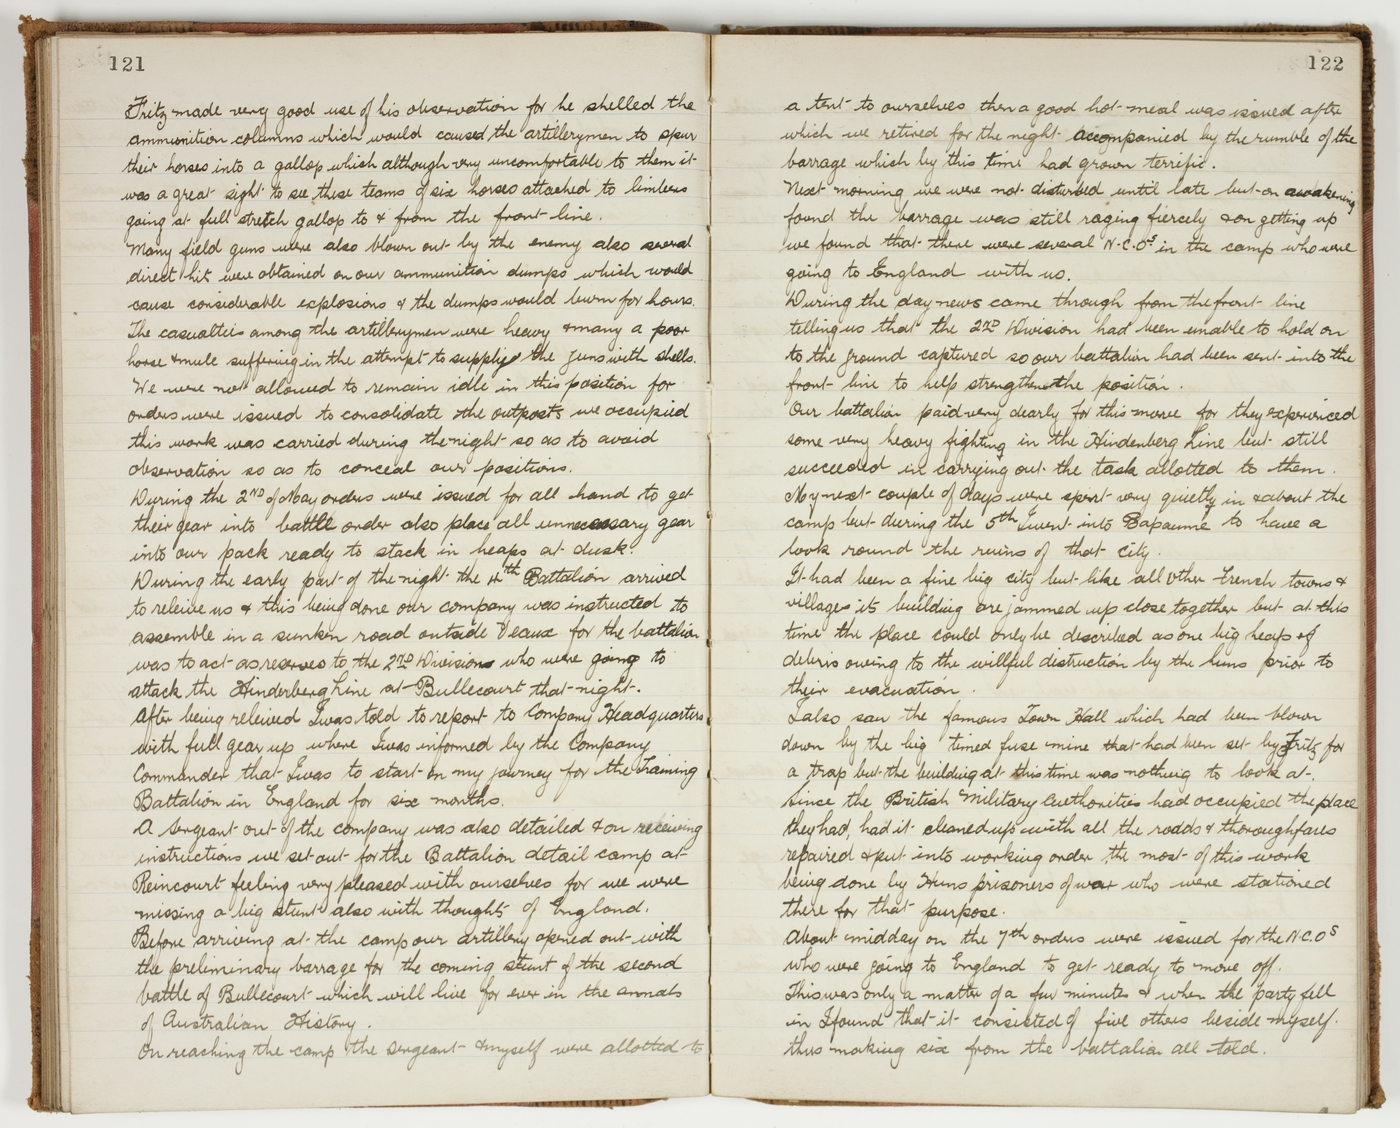 121
Fritz made very good use of his observation for he shelled the
ammunition columns which would caused the artillerymen to spur
their horses into a gallop which although very uncomfortable to them it
was a great sight to see these teams of six horses attached to limbers
going at full stretch gallop to & from the front-line.
Many field guns were also blown out by the enemy also several
direct hit were obtained on our ammunition dumps which would
cause considerable explosions & the dumps would burn for hours.
The casualties among the artillerymen were heavy & many a poor
horse & mule suffering in the attempt to supply the guns with shells.
We were not allowed to remain idle in this position for
orders were issued to consolidate the outposts we occupied
this work was carried during the night so as to avoid
observation so as to conceal our positions.
During the 2ND of May orders were issued for all hand to get
their gear into battle order also place all unnecessary gear
into our pack ready to stack in heaps at dusk.
During the early part of the night the 4th Battalion arrived
to releive us & this being done our company was instructed to
assemble in a sunken road outside Veaux for the battalion
was to act as reserves to the 2ND Divisions who were going to
attack the Hinderberg Line at Bullecourt that night.
After being releived I was told to report to Company Headquarters
with full gear up where I was informed by the Company
Commander that I was to start on my journey for the Training
Battalion in England for six months.
A Sergeant out of the company was also detailed & on receiving
instructions we set out for the Battalion detail camp at
Reincourt feeling very pleased with ourselves for we were
missing a big stunt also with thoughts of England.
Before arriving at the camp our artillery opened out with
the preliminary barrage for the coming stunt of the second
battle of Bullecourt which will live for ever in the annals
of Australian History.
On reaching the camp the sergeant & myself were allotted to
122
a tent to ourselves then a good hot meal was issued after
which we retired for the night accompanied by the rumble of the
barrage which by this time had grown terrific.
Next morning we were not disturbed until late but on awakening
found the barrage was still raging fiercely & on getting up
we found that there were several N.C.Os in the camp who were
going to England with us.
During the day news came through from the front line
telling us that the 2ND Division had been unable to hold on
to the ground captured so our battalion had been sent into the
front line to help strengthen the position.
Our battalion paid very dearly for this move for they experienced
some very heavy fighting in the Hindenberg Line but still
succeeded in carrying out the task allotted to them.
My next couple of days were spent very quietly in & about the
camp but during the 5th I went into Bapaume to have a
look round the ruins of that city.
It had been a fine big city but like all other French towns &
villages its building are jammed up close together but at this
time the place could only be described as one big heap of
debris owing to the willful distruction by the huns prior to
their evacuation.
I also saw the famous Town Hall which had been blown
down by the big timed fuse mine that had been set by Fritz for
a trap but the building at this time was nothing to look at.
Since the British Military Authorities had occupied the place
they had, had it cleaned up with all the roads & thoroughfares
repaired & put into working order the most of this work
being done by Huns prisoners of war who were stationed
there for that purpose.
About midday on the 7th orders were issued for the N.C.Os
who were going to England to get ready to move off.
This was only a matter of a few minutes & when the party fell
in I found that it consisted of five others beside myself.
thus making six from the battalion all told.